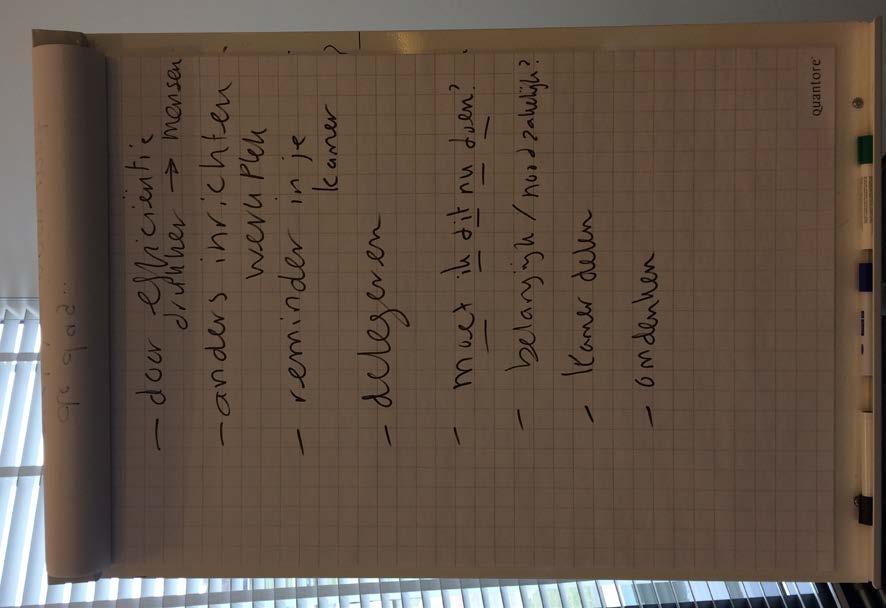 - door efficiëntie
drukker → mensen
- anders inrichten
werkplek
- reminder in je
kamer
- delegeren
- moet ik dit nu doen?
- belangrijk / noodzakelijk?
- kamer delen
- omdenken
quantore